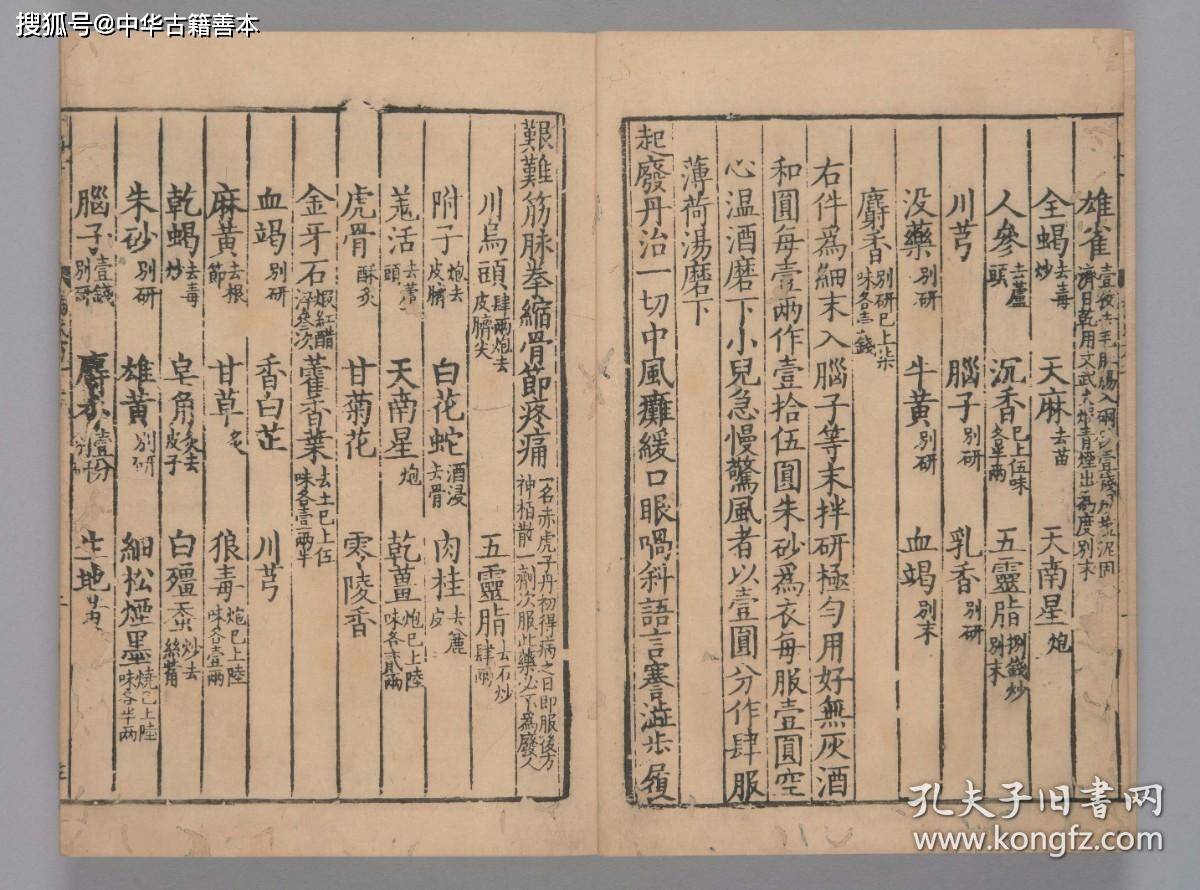 搜狐号@中华古籍善本
雄雀 壹隻去毛 濟日乾用文武火 青煙出為度別末
全蝎 去毒炒 天麻 去苗 天南星 炮
人參 去蘆頭 沉香 已上伍味各半兩 五靈脂 捌錢炒別末
川芎 腦子 別研 乳香 別研
没藥 別研 牛黃 別研 血竭 別末
麝香 別研已上柒味各壹錢
右件為細末入腦子等末拌研極勻用好無灰酒
和圓每壹兩作壹拾伍圓朱砂為衣每服壹圓空
心温酒磨下小兒急慢驚風者以壹圓分作肆服
薄荷湯磨下
起廢丹治一切中風癱緩口眼喎斜語言謇澁步履
艱難筋脉拳縮骨節疼痛 一名赤虎子丹初得病之日即服後方神栢散一劑次服此藥必不為廢人
川烏頭 肆兩炮去皮臍尖 五靈脂 去石炒肆兩
附子 炮去皮臍 白花蛇 酒浸去骨 肉桂 去麄皮
羗活 去蘆頭 天南星 炮 乾薑 炮已上陸味各貳兩
虎骨 酥炙 甘菊花 零陵香
金牙石 煆紅醋淬叄次 藿香葉 去土已上伍味各壹兩半
血竭 別研 香白芷 川芎
麻黃 去根節 甘草 炙 狼毒 炮已上陸味各壹兩
乾蝎 去毒炒 皂角 炙去皮子 白殭蚕 炒去絲觜
朱砂 別研 雄黃 別研 細松煙墨 燒已上陸味各半兩
腦子 壹錢別研 麝香 壹分別研 生地黃
孔夫子旧书网
www.kongfz.com